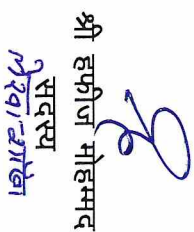 श्री हफीज मोहम्मद
सदस्य